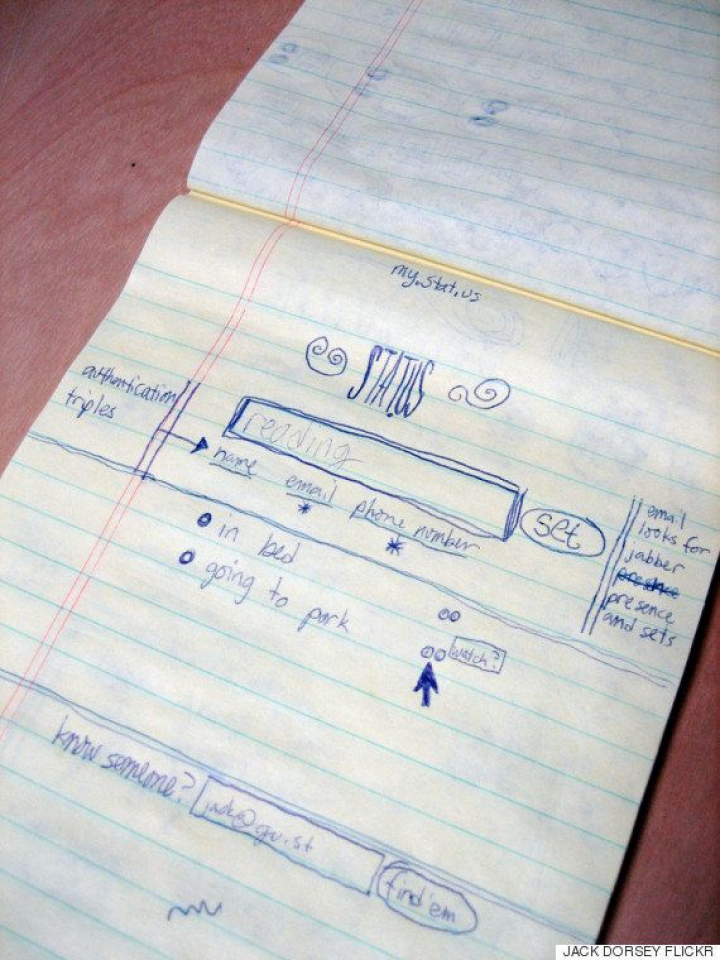 my.stat.us
STAT.US
authentication
triples
reading
name email phone number
set
email
looks for
jabber
presence
presence
and sets
in bed
going to park
watch?
know someone? jack@gu.st
find'em
JACK DORSEY FLICKR